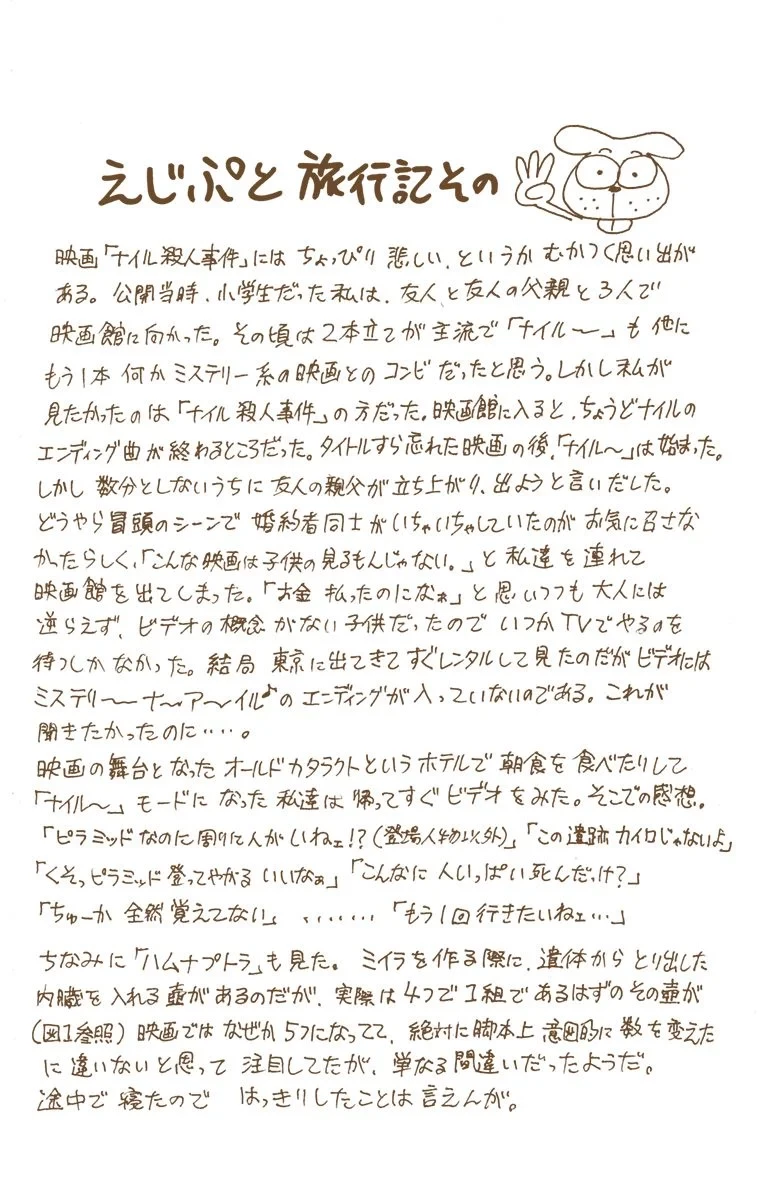 えじぷと旅行記その
映画「ナイル殺人事件」には ちょっぴり 悲しい、というか むかつく思い出が
ある。公開当時、小学生だった私は、友人と友人の父親と3人で
映画館に向かった。その頃は2本立てが主流で「ナイル〜」も他に
もう1本 何かミステリー系の映画とのコンビだったと思う。しかし私が
見たかったのは「ナイル殺人事件」の方だった。映画館に入ると、ちょうどナイルの
エンディング曲が終わるところだった。タイトルすら忘れた映画の後、「ナイル〜」は始まった。
しかし 数分としないうちに 友人の親父が立ち上がり、出ようと言いだした。
どうやら冒頭のシーンで 婚約者同士がいちゃいちゃしていたのが お気に召さな
かったらしく、「こんな映画は子供の見るもんじゃない。」と 私達を連れて
映画館を出てしまった。「お金 払ったのになぁ」と思いつつも 大人には
逆らえず、ビデオの概念がない子供だったので いつかTVでやるのを
待つしかなかった。結局 東京に出てきてすぐレンタルして見たのだがビデオには
ミステリ〜〜ナ〜ア〜イル♪のエンディングが入っていないのである。これが
聞きたかったのに‥‥。
映画の舞台となった オールドカタラクトというホテルで 朝食を食べたりして
「ナイル〜」モードになった私達は帰ってすぐビデオをみた。そこでの感想。
「ピラミッドなのに周りに人がいねェ!?(登場人物以外)」「この遺跡カイロじゃないよ」
「くそっピラミッド登ってやがる いいなぁ」「こんなに人いっぱい死んだっけ?」
「ちゅーか 全然覚えてない」 ‥‥‥‥ 「もう1回行きたいねェ…」
ちなみに「ハムナプトラ」も見た。ミイラを作る際に、遺体からとり出した
内臓を入れる壺があるのだが、実際は4つで1組であるはずのその壺が
(図1参照)映画ではなぜか5つになってて、絶対に脚本上 意図的に数を変えた
に違いないと思って 注目してたが、単なる間違いだったようだ。
途中で寝たので はっきりしたことは言えんが。